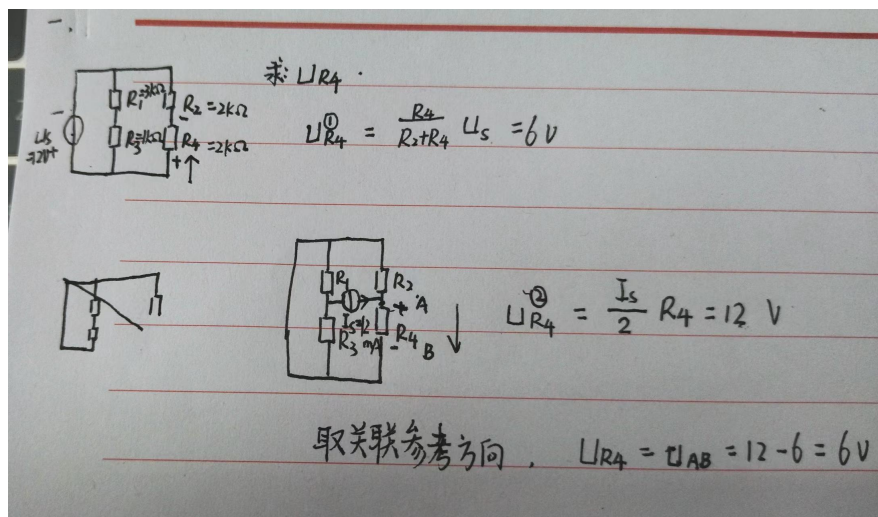 一、
求: UR4 .
R1=3kΩ R2=2kΩ
-
-
Us=12V+
R3=1kΩ R4=2kΩ
+
UR4① = R4/(R2+R4) Us = 6V
R1 R2
+ A
Is=12mA
R3 R4
- B
UR4② = Is/2 R4 = 12 V
取关联参考方向. UR4 = UAB = 12-6 = 6V